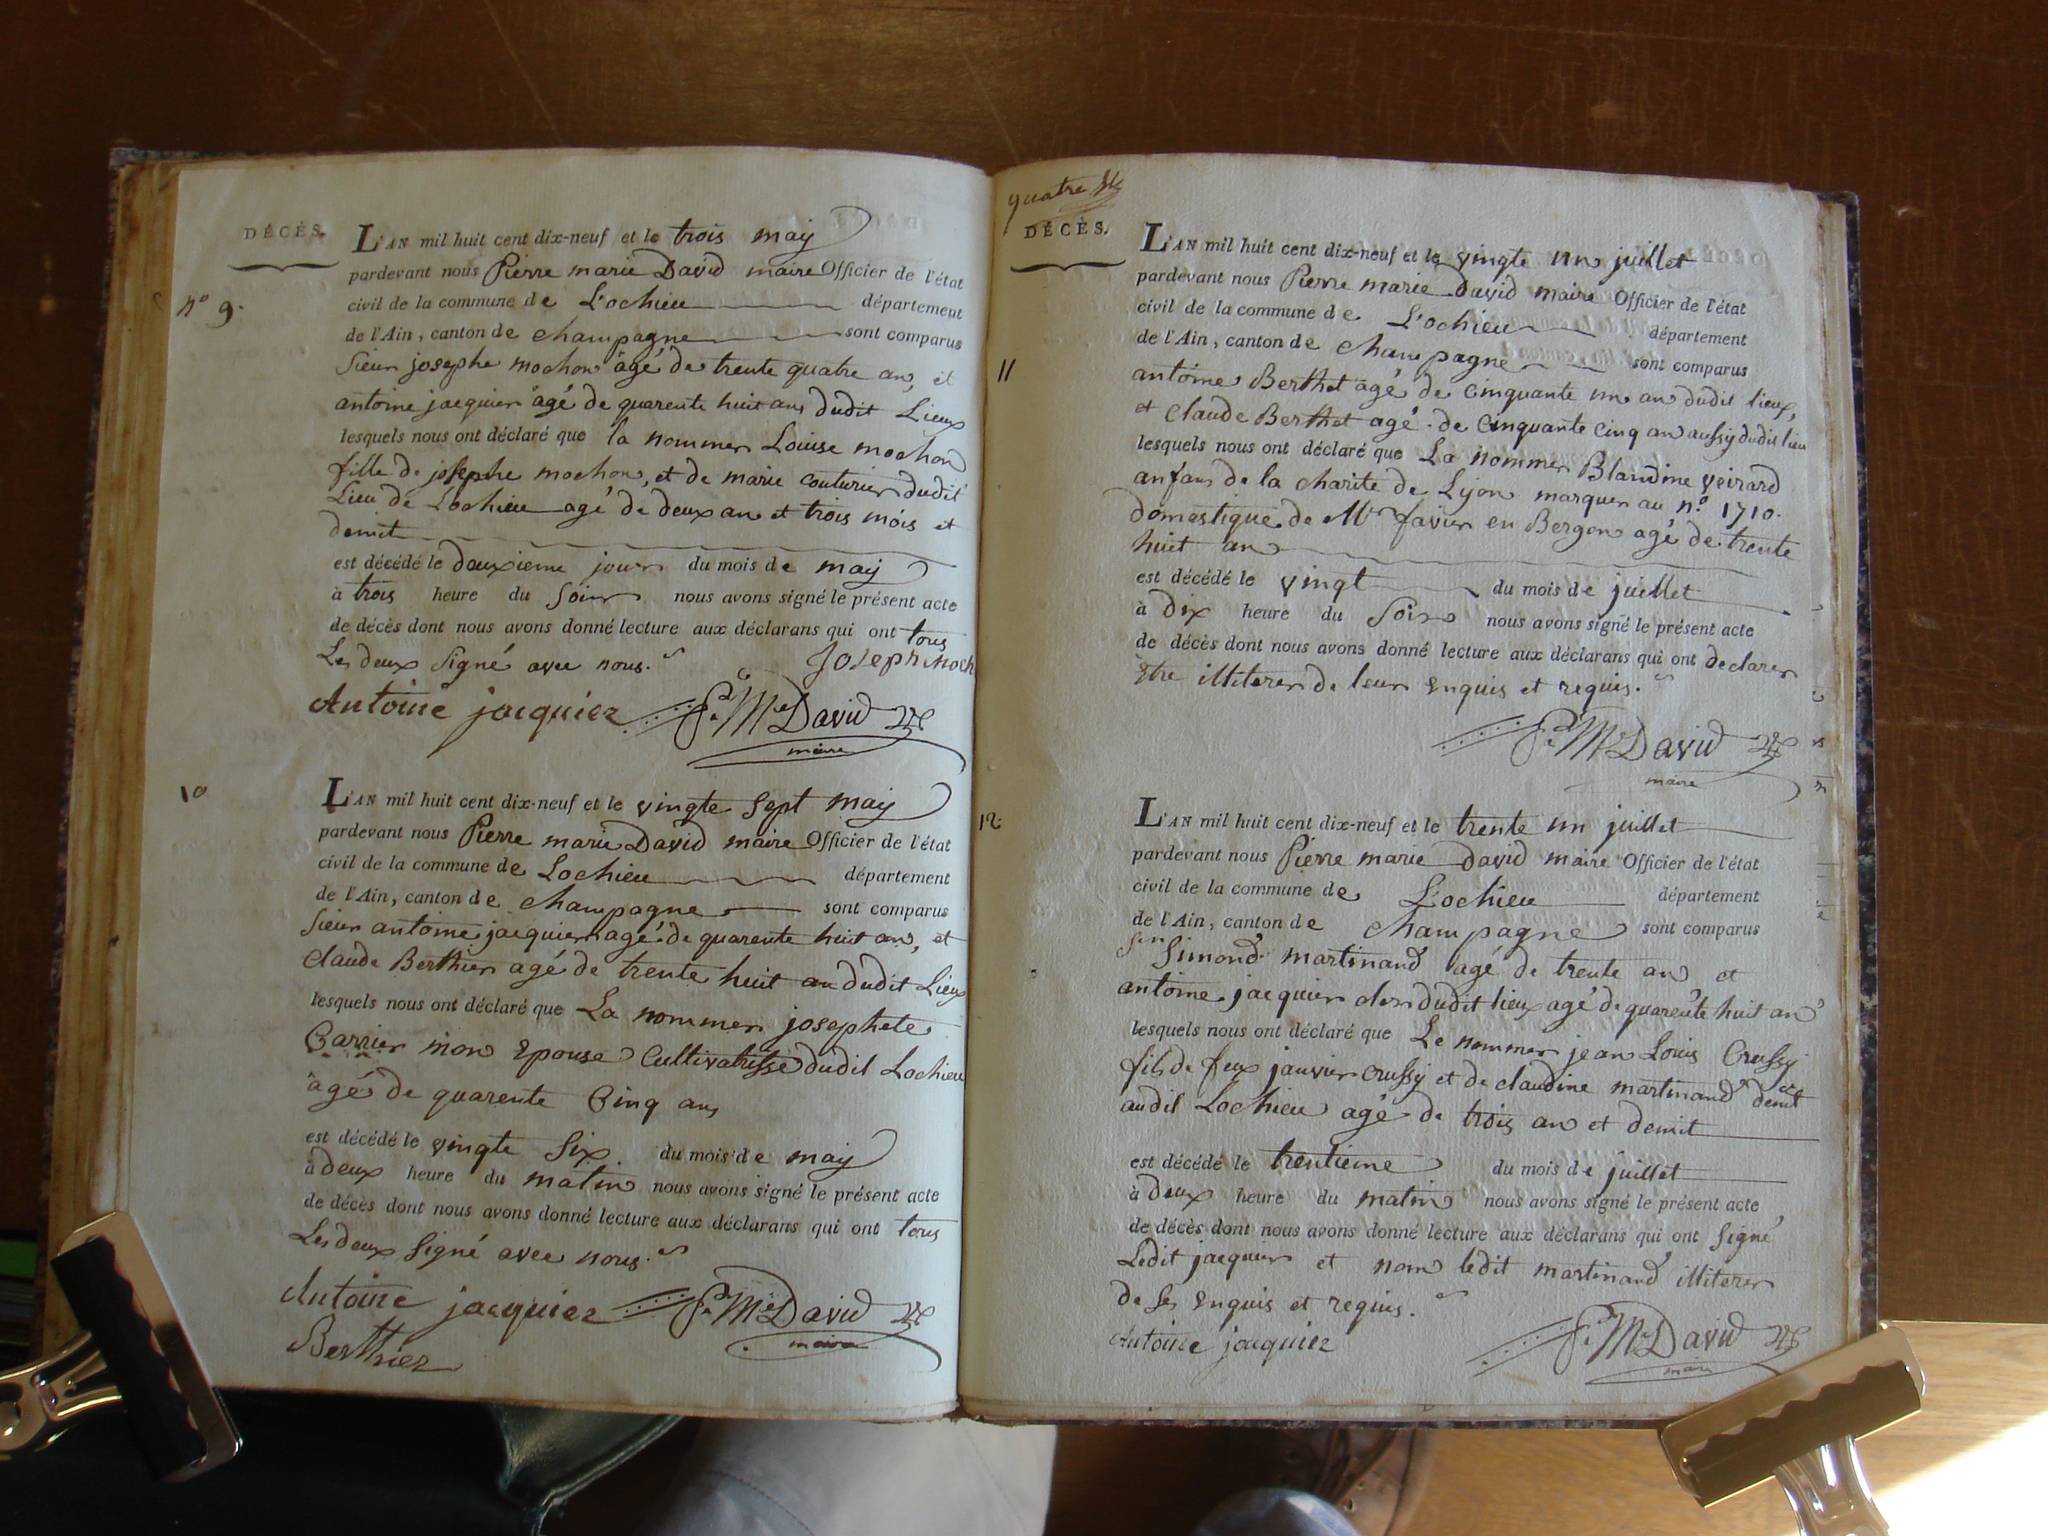 DÉCÈS.
L'AN mil huit cent dix-neuf et le trois may
pardevant nous Pierre marie David maire Officier de l'état
n° 9.
civil de la commune de L'ochieu département
de l'Ain, canton de champagne sont comparus
Sieur josephe mochon âgé de trente quatre an, et
antoine jacquier âgé de quarente huit ans dudit Lieux
lesquels nous ont déclaré que la nommer Louise mochon
fille de josephe mochon, et de marie couturier dudit
Lieu de Lochieu agé de deux an et trois mois et
demit
est décédé le deuxieme jour du mois de may
à trois heure du Soir nous avons signé le présent acte
de décès dont nous avons donné lecture aux déclarans qui ont tous
Les deux Signé avec nous.
Joseph Moch
Antoine jacquier P.re M.ie David
maire
10
L'AN mil huit cent dix-neuf et le vingte Sept may
pardevant nous Pierre marie David maire Officier de l'état
civil de la commune de Lochieu département
de l'Ain, canton de champagne sont comparus
Sieur antoine jacquier agé de quarente huit an, et
Claude Berthier agé de trente huit an dudit Lieux
lesquels nous ont déclaré que La nommer josephete
Carrier mon Epouse Cultivatrisse dudit Lochieu
agé de quarente Cinq ans
est décédé le vingte Six du mois de may
à deux heure du matin nous avons signé le présent acte
de décès dont nous avons donné lecture aux déclarans qui ont tous
Les deux Signé avec nous.
Antoine jacquier P.re M.ie David
maire
Berthier
quatre
DÉCÈS.
L'AN mil huit cent dix-neuf et le vingte un juillet
pardevant nous Pierre marie David maire Officier de l'état
civil de la commune de L'ochieu département
de l'Ain, canton de champagne sont comparus
11
antoine Berthet agé de cinquante un an dudit lieux,
et claude Berthet agé de cinquante cinq an aussy dudit lieu
lesquels nous ont déclaré que La nommer Blandine veirard
anfans de la charite de Lyon marquer au n.° 1710.
domestique de Mr favier en Bergon agé de trente
huit an
est décédé le vingt du mois de juillet
à dix heure du Soir nous avons signé le présent acte
de décès dont nous avons donné lecture aux déclarans qui ont declarer
Etre illiterer de leur enquis et requis.
P.re M.ie David
maire
12
L'AN mil huit cent dix-neuf et le trente un juillet
pardevant nous Pierre marie David maire Officier de l'état
civil de la commune de Lochieu département
de l'Ain, canton de champagne sont comparus
Sr Simond martinand agé de trente an et
antoine jacquier dudit lieux agé de quarente huit an
lesquels nous ont déclaré que Le nommer jean Louis Crussy
fils de feux janvier crussy et de claudine martinand
audit Lochieu agé de trois an et demit
est décédé le trentieme du mois de juillet
à deux heure du matin nous avons signé le présent acte
de décès dont nous avons donné lecture aux déclarans qui ont Signé
Ledit jacquier et nom ledit martinand illiterer
de Ses enquis et requis.
Antoine jacquier P.re M.ie David
maire